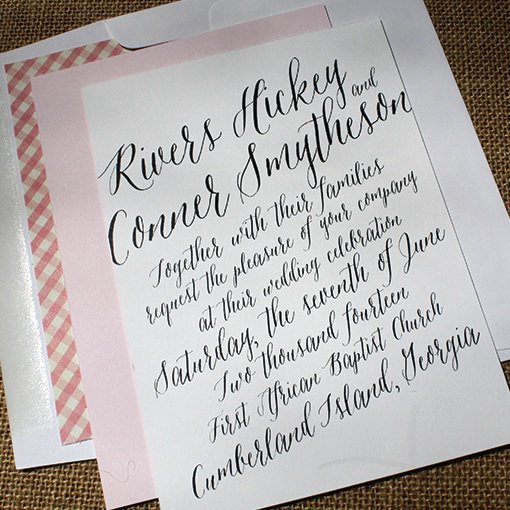 Rivers Hickey and
Conner Smytheson
Together with their families
request the pleasure of your company
at their wedding celebration
Saturday, the seventh of June
Two thousand fourteen
First African Baptist Church
Cumberland Island, Georgia